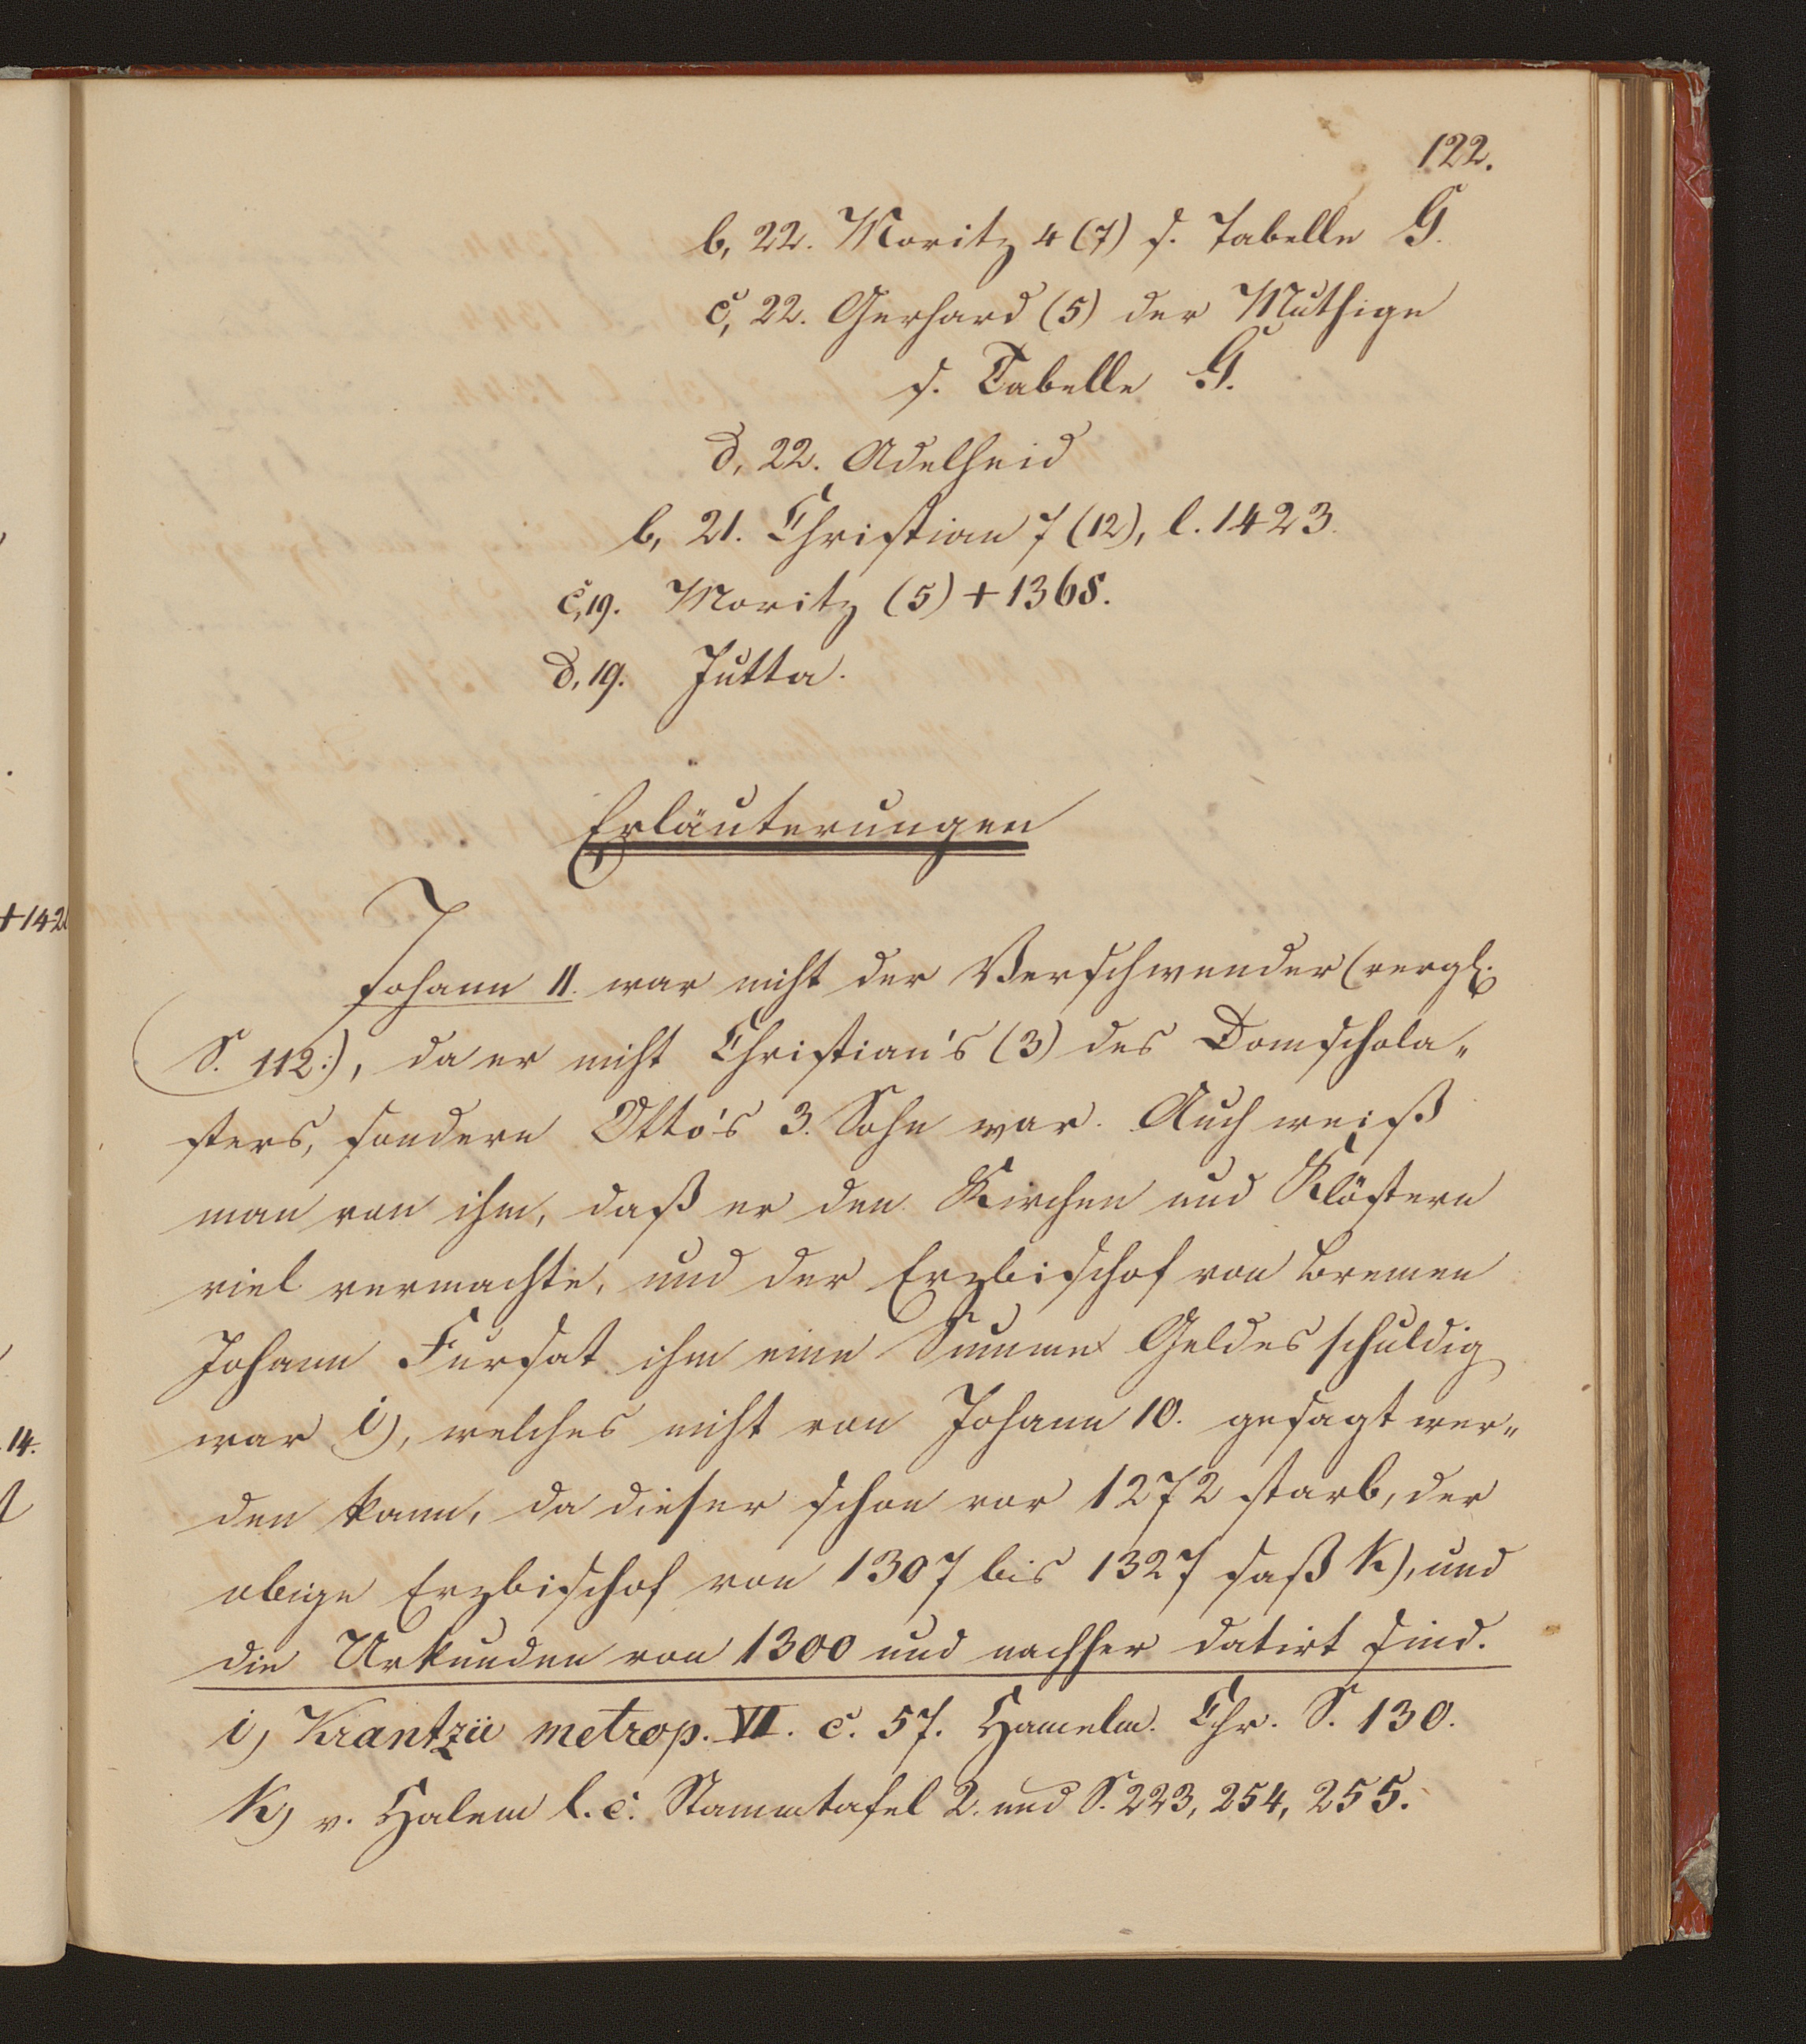 122.
b, 22. Moritz 4 (7) s. Tabelle G.
c, 22. Gerhard (5) der Muthige
s. Tabelle G.
d, 22. Adelheid
b, 21. Christian 7 (12), l. 1423.
c, 19. Moritz (5) + 1368.
d, 19. Jutta.
Erläuterungen
+142
Johann 11. war nicht der Verschwender (vergl.
S. 112:), da er nicht Christian's (3) des Domschola„
sters, sondern Otto's 3. Sohn war. Auch weiß
man von ihm, daß er den Kirchen und Klöstern
viel vermachte, und der Erzbischof von Bremen
Johann Fursat ihm eine Summe Geldes schuldig
14.
war i), welches nicht von Johann 10. gesagt wer„
den kann, da dieser schon vor 1272 starb, der
obige Erzbischof von 1307 bis 1327 saß k), und
die Urkunden von 1300 und nachher datirt sind.
i) Krantzii metrop. VI. c. 57. Hamelm. Chr. S. 130.
k) v. Halem l. c. Stammtafel 2. und S. 223, 254, 255.